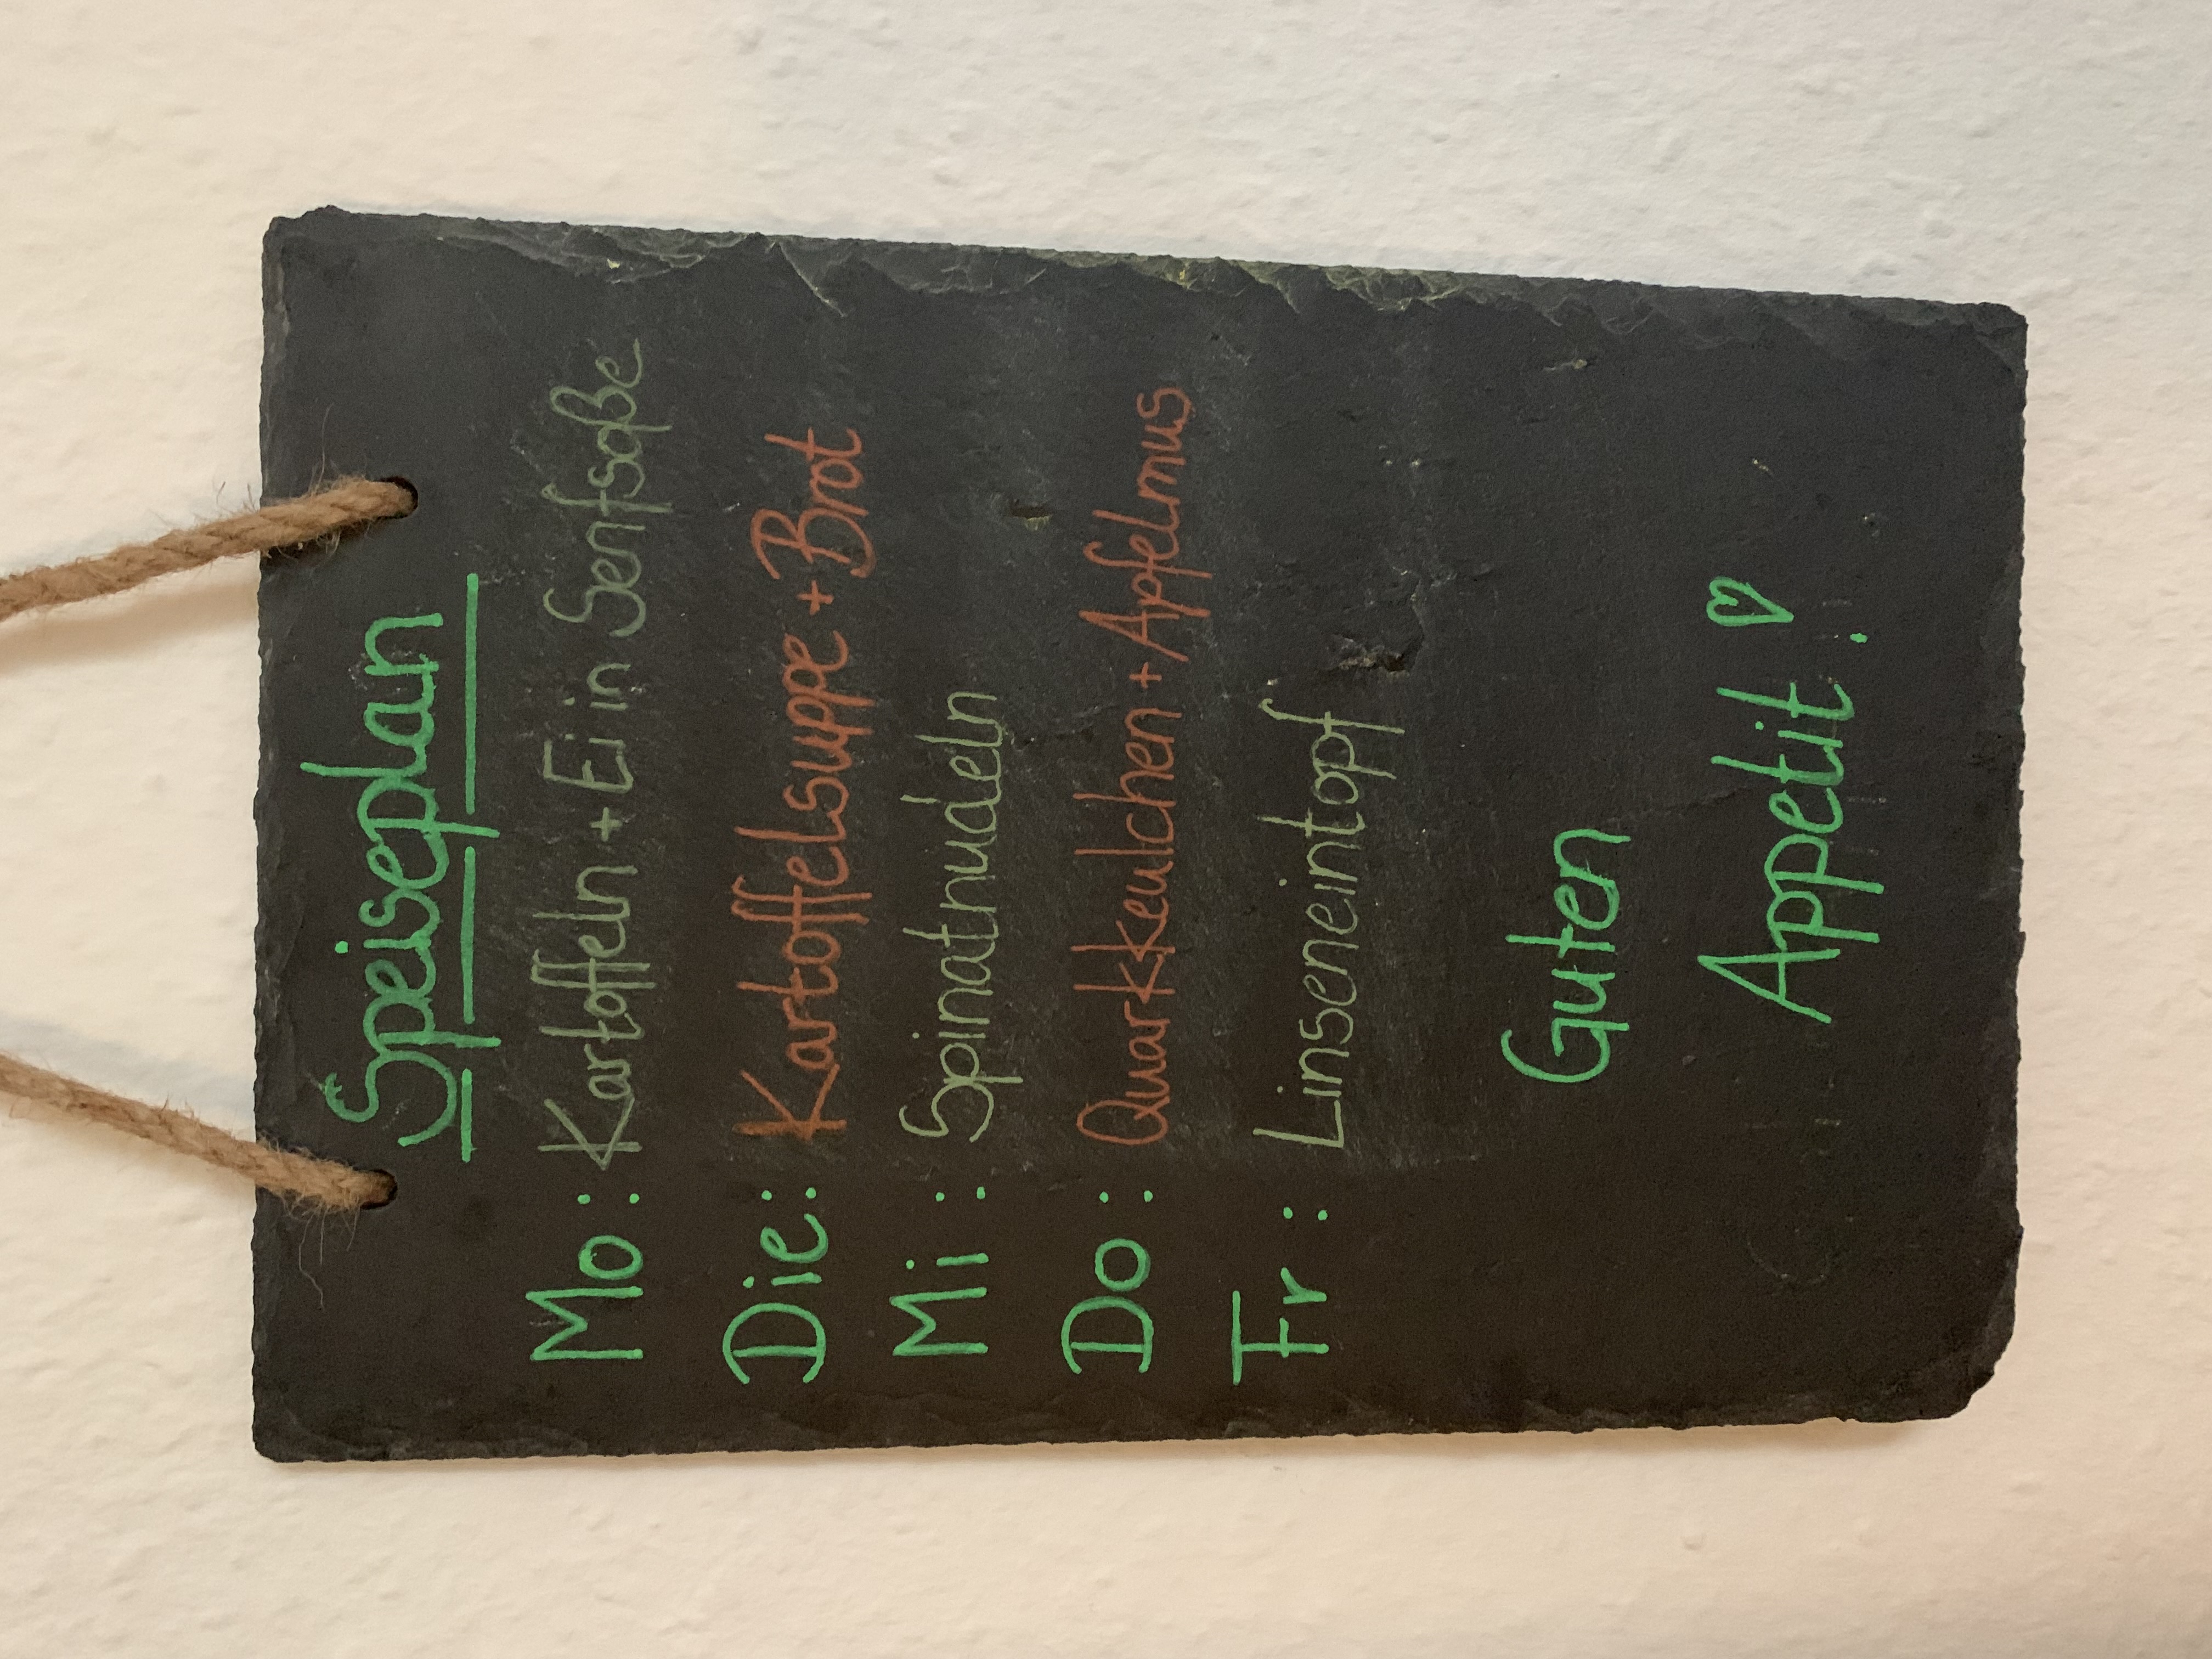 Speiseplan
Mo: Kartoffeln + Ei in Senfsoße
Die: Kartoffelsuppe + Brot
Mi: Spinatnudeln
Do: Quarkkeulchen + Apfelmus
Fr: Linseneintopf
Guten
Appetit! ♡